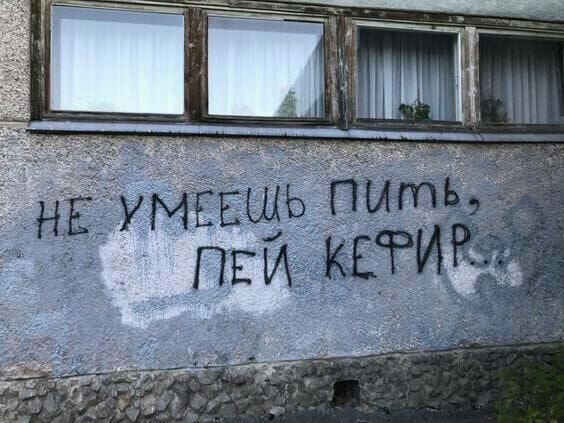 НЕ УМЕЕШЬ ПИТЬ,
ПЕЙ КЕФИР...